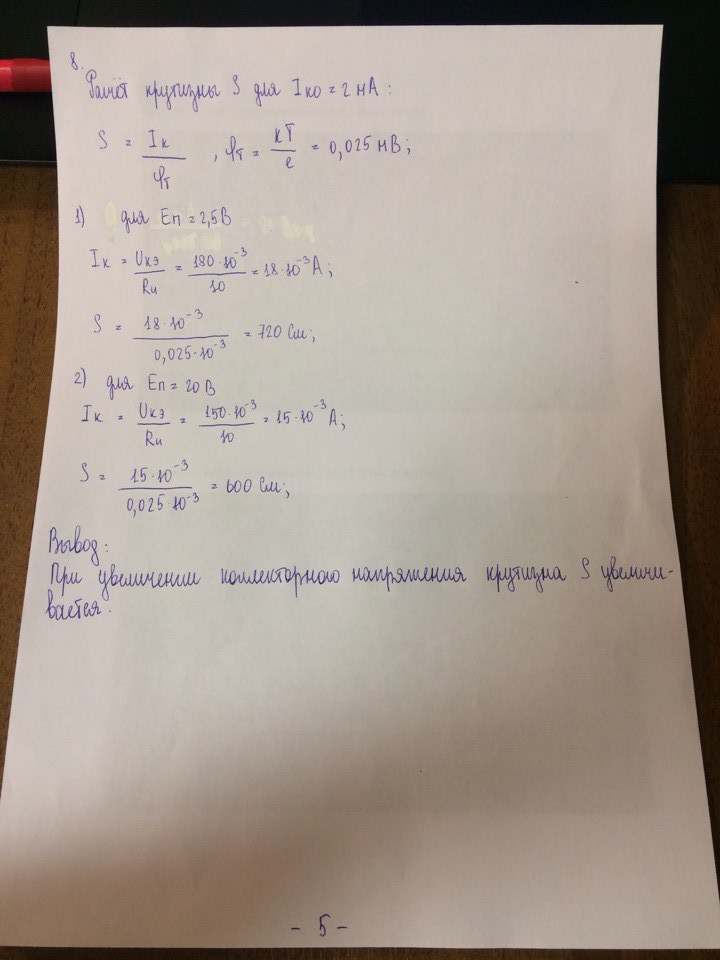 8.
Расчёт крутизны S для Iко = 2 мА:
S = Iк / φт , φт = кТ / е = 0,025 мВ;
1) для Еп = 2,5 В
Iк = Uкэ / Rи = 180·10⁻³ / 10 = 18·10⁻³ А;
S = 18·10⁻³ / 0,025·10⁻³ = 720 См;
2) для Еп = 20 В
Iк = Uкэ / Rи = 150·10⁻³ / 10 = 15·10⁻³ А;
S = 15·10⁻³ / 0,025·10⁻³ = 600 См;
Вывод:
При увеличении коллекторного напряжения крутизна S увеличи-
вается.
- 5 -